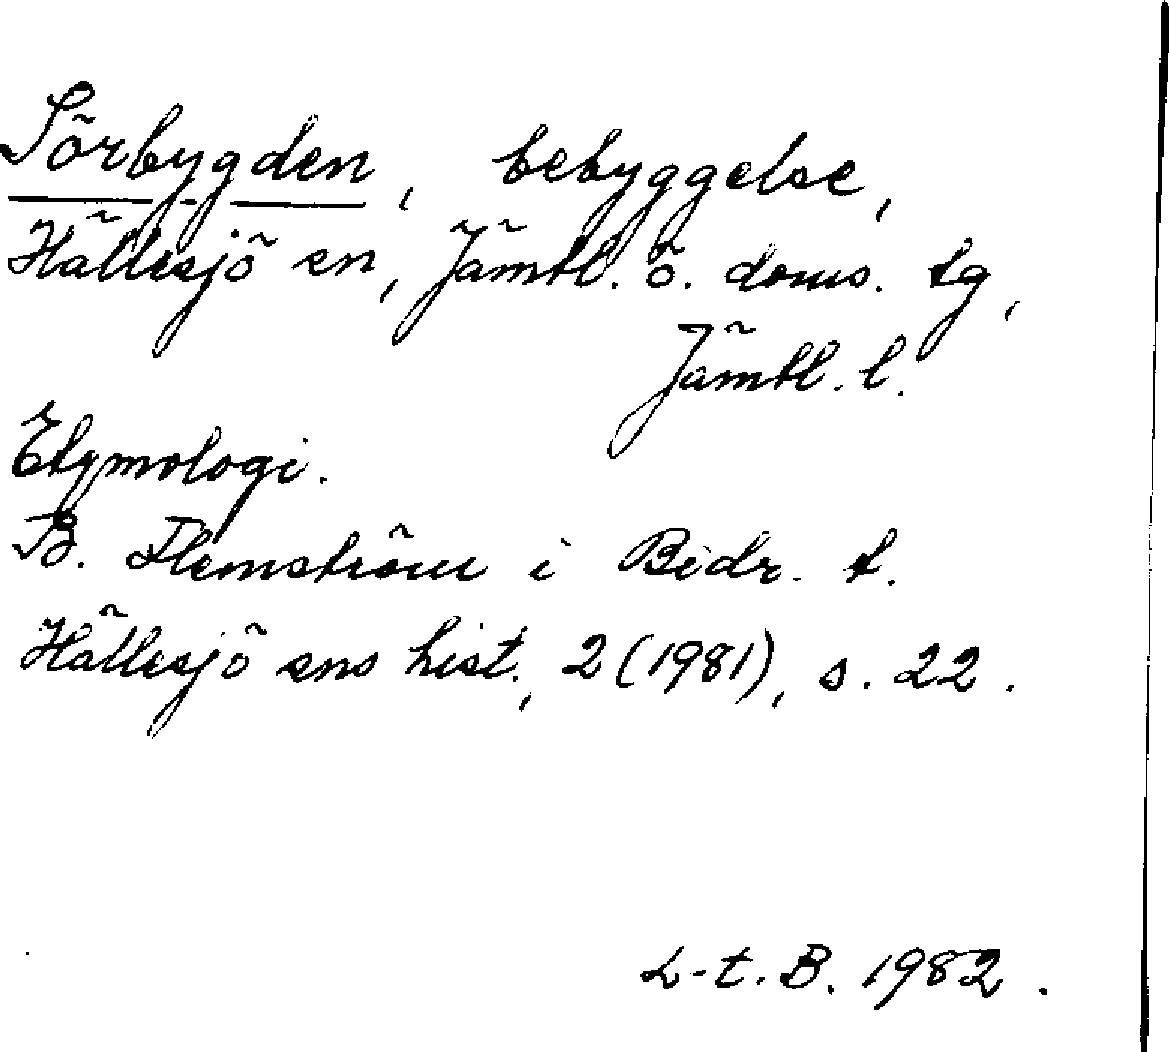 Sörbygden, bebyggelse,
Hällesjö sn, Jämtl. ö. doms. tg,
Jämtl. l.
Etymologi.
B. Flemström i Bidr. t.
Hällesjö sns hist., 2 (1981), s. 22.
L-t. B. 1982.